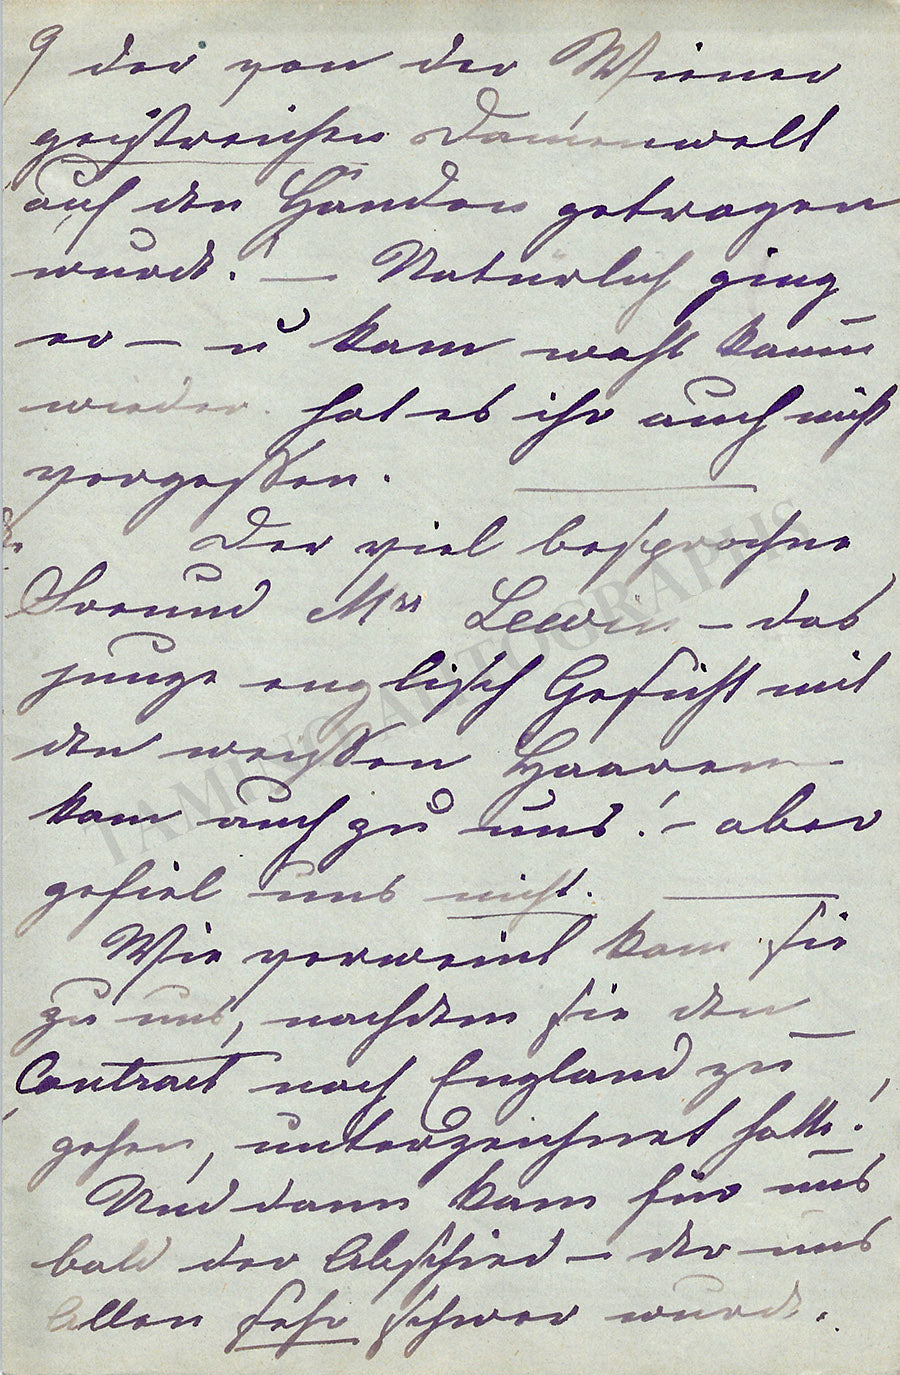 9 der von der Wiener
geistreichen Damenwelt
auf den Händen getragen
wurde. — Natürlich ging
er — u kam wohl kaum
wieder. hat es ihr auch nicht
vergessen.
Der viel besprochne
Freund Mrs Lewin — das
junge englisch Gesicht mit
den weißen Haaren —
kam auch zu uns! — aber
gefiel uns nicht.
Wie verweint kam sie
zu uns, nachdem sie den
Contract nach England zu
gehen, unterzeichnet hatte!
Und dann kam für uns
bald der Abschied — der uns
Allen sehr schwer wurde.
TAMINO AUTOGRAPHS